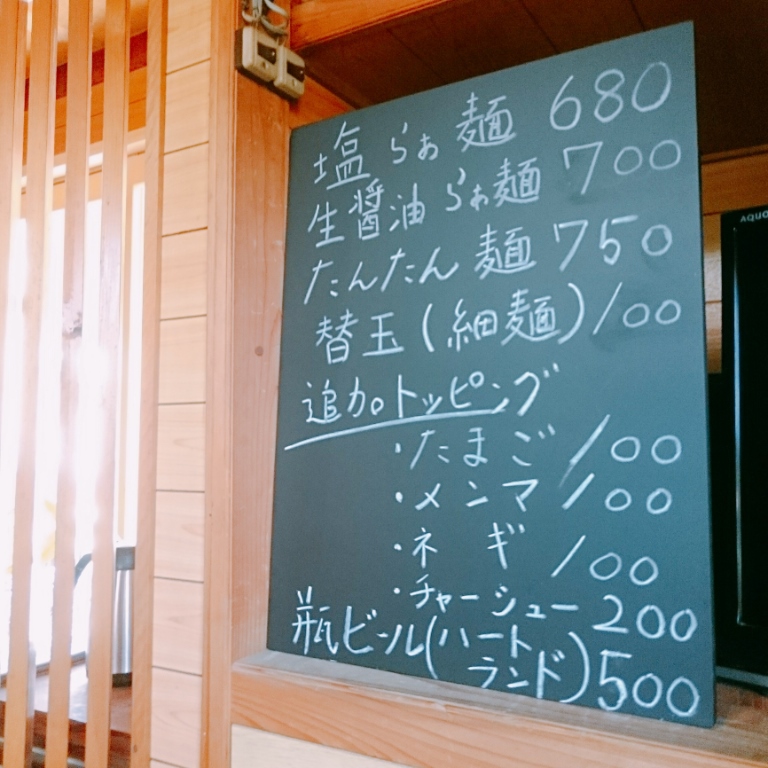 塩らぁ麺 680
生醤油らぁ麺 700
たんたん麺 750
替玉(細麺) 100
追加トッピング
・たまご 100
・メンマ 100
・ネギ 100
・チャーシュー 200
瓶ビール(ハートランド) 500
AQUO